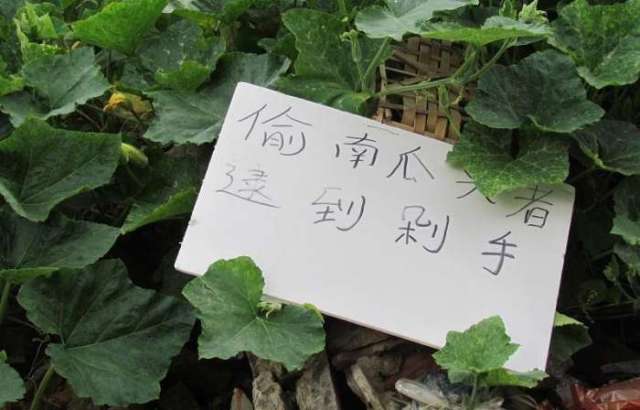 偷南瓜者
逮到剁手